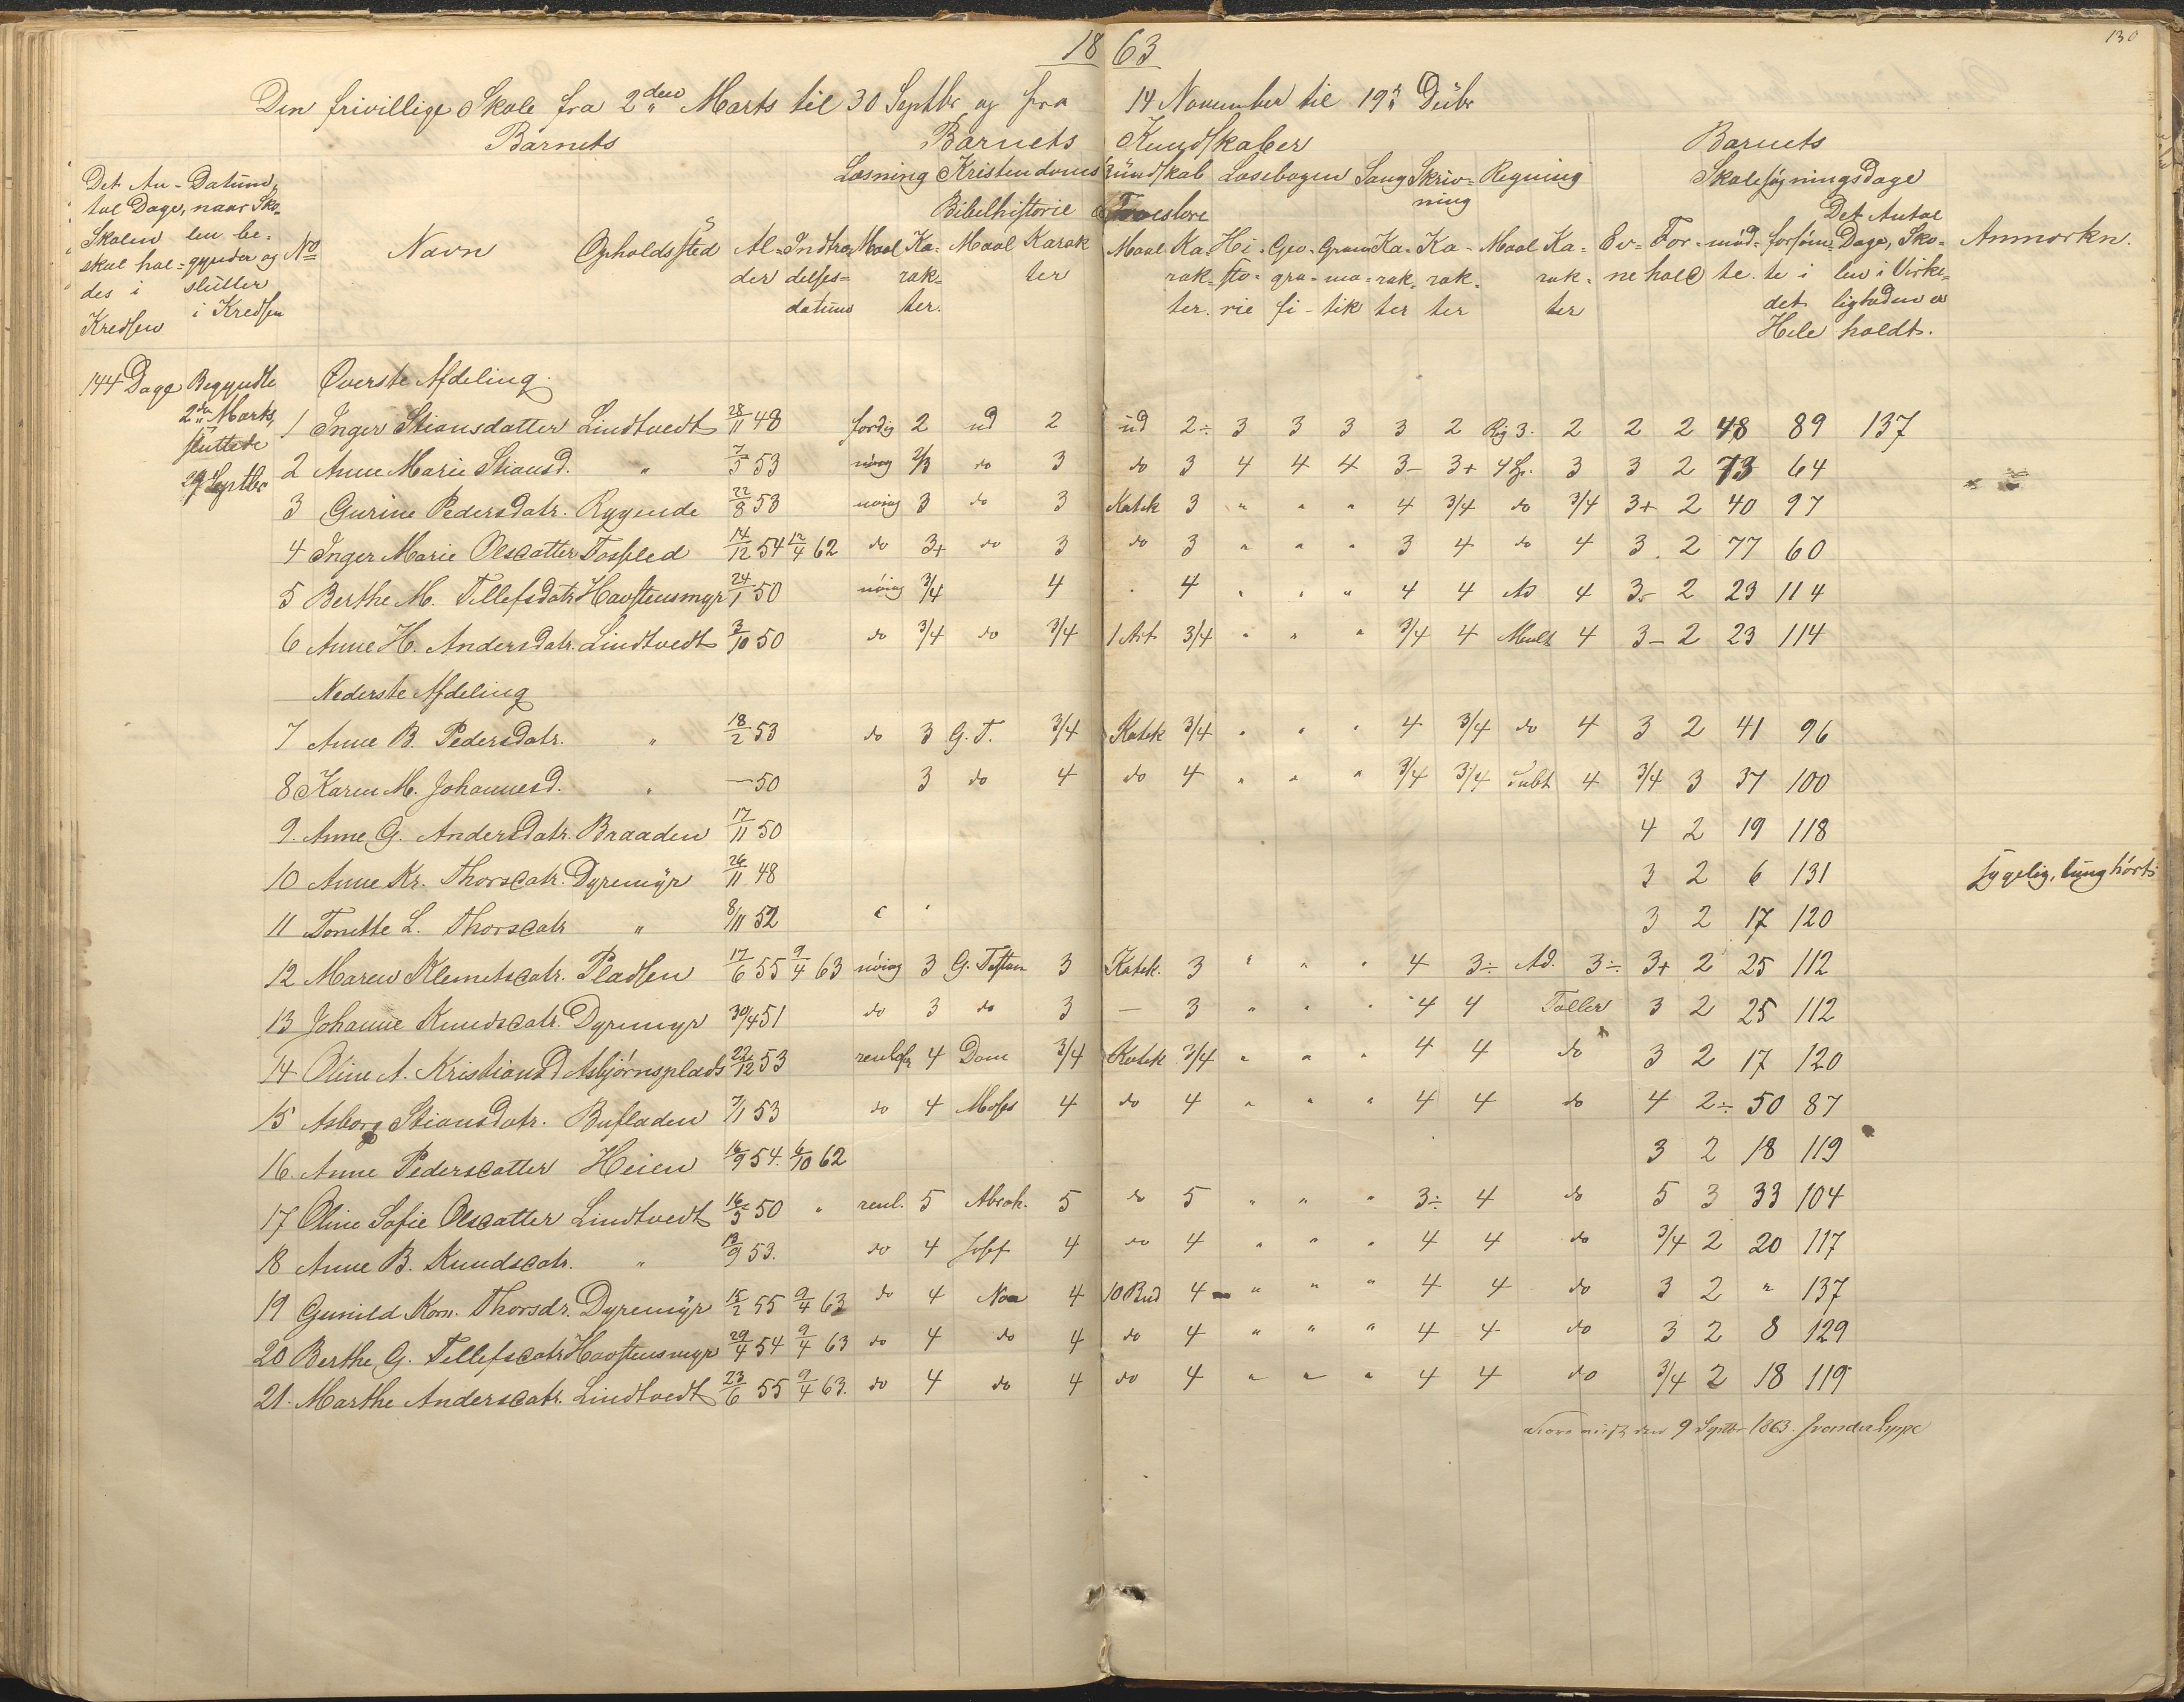 130
1863
Den frivillige Skole fra 2den Marts til 30 Septbr og fra 14 November til 19 Decbr
Barnets Barnets Kundskaber Barnets
Læsning Kristendomskundskab Læsebogen Sang Skrivning Regning Skolesøgningsdage
Bibelhistorie Troeslære
Det Antal Dage, Skolen skal holdes i Kredsen
Datum, naar Skolen begynder og slutter i Kredsen
No Navn Opholdssted Alder Indtrædelsesdatum Maal Karakter Maal Karakter Maal Karakter Historie Geografi Gramatik Karakter Karakter Maal Karakter Evne Forhold mødte forsømte i det Hele Det Antal Dage, Skolen i Virkeligheden er holdt. Anmærkn.
144 Dage Begyndte 2den Marts, sluttede 29 Septbr
Øverste Afdeling
1 Inger Stiansdatter Lindtvedt 28/11 48 færdig 2 ud 2 ud 2÷ 3 3 3 3 2 Rig 3. 2 2 2 48 89 137
2 Anne Marie Stiansd. " 7/5 53 nøiag 2/3 do 3 do 3 4 4 4 3- 3+ 4 3 3 2 73 64
3 Gurine Pedersdatr. Rygende 22/8 53 nøiag 3 do 3 Katek 3 " " " 4 3/4 do 3/4 3+ 2 40 97
4 Inger Marie Olsdatter 14/12 54 12/4 62 do 3+ do 3 do 3 " " " 3 4 do 4 3. 2 77 60
5 Berthe M. Tellefsdatr Havstensmyr 24/1 50 nøiag 3/4 4 . 4 " " " 4 4 Ad 4 3- 2 23 114
6 Anne H. Andersdatr. Lindtvedt 3/10 50 do 3/4 do 3/4 1 Art 3/4 " " " 3/4 4 Mult 4 3- 2 23 114
Nederste Afdeling
7 Anne B. Pedersdatr. " 18/2 53 do 3 G. T. 3/4 Katek 3/4 " " " 4 3/4 do 4 3 2 41 96
8 Karen M. Johannesd. " — 50 3 do 4 do 4 " " " 3/4 3/4 Subt 4 3/4 3 37 100
9. Anne G. Andersdatr. Braaden 17/11 50 4 2 19 118
10 Anne Kr. Thorsdatr. Dyremyr 26/11 48 3 2 6 131 sygelig, tunghørt
11 Tonette L. Thorsdatr " 8/11 52 3 2 17 120
12 Maren Klemetsdatr. Pladsen 17/6 55 9/4 63 nøiag 3 G. Testam 3 Katek. 3 " " " 4 3÷ Ad. 3÷ 3+ 2 25 112
13 Johanne Knudsdatr. Dyremyr 30/4 51 do 3 do 3 — 3 " " " 4 4 Taller 3 2 25 112
14 Oline A. Kristiansd Asbjørnsplads 22/12 53 4 Dom 3/4 Katek 3/4 " " " 4 4 do 3 2 17 120
15 Asborg Stiansdatr. Bufladen 7/1 53 do 4 Moses 4 do 4 " " " 4 4 do 4 2÷ 50 87
16. Anne Pedersdatter Heien 16/9 54. 6/10 62 3 2 18 119
17 Oline Sofie Olsdatter Lindtvedt 16/5 50 " renl. 5 Abrah. 5 do 5 " " " 3÷ 4 do 5 3 33 104
18 Anne B. Knudsdatr. " 13/9 53. do 4 Josef 4 do 4 " " " 4 4 do 3/4 2 20 117
19 Gunild Kom. Thorsdr. Dyremyr 15/2 55 9/4 63 do 4 Noa 4 10 Bud 4 " " " 4 4 do 3 2 " 137
20 Berthe G. Tellefsdatr Havstensmyr 29/4 54 9/4 63 do 4 do 4 do 4 " " " 4 4 do 3 2 8 129
21. Marthe Andersdatr. Lindtvedt 23/6 55 9/4 63. do 4 do 4 do 4 " " " 4 4 do 3/4 2 18 119
den 9 Septbr 1863.